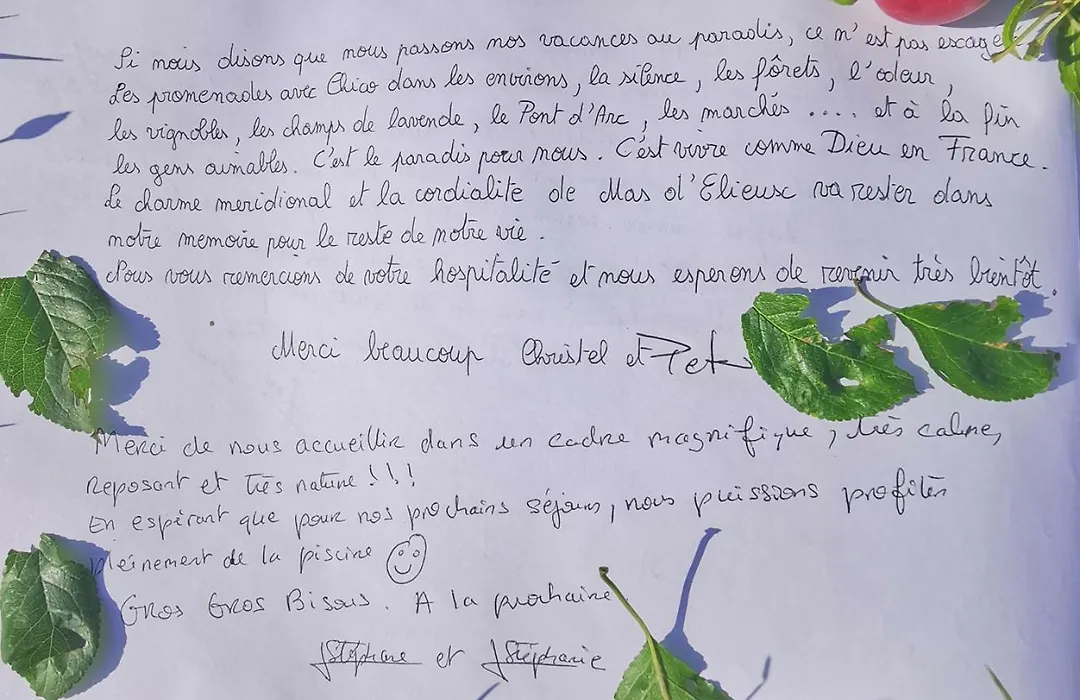 Si nous disons que nous passons nos vacances au paradis, ce n'est pas
Les promenades avec Chico dans les environs, la silence, les fôrets, l'odeur,
les vignobles, les champs de lavende, le Pont d'Arc, les marchés .... et à la fin
les gens aimables. C'est le paradis pour nous. C'est vivre comme Dieu en France.
Le charme meridional et la cordialite de Mas d'Elieux va rester dans
notre memoire pour le reste de notre vie.
Nous vous remercions de votre hospitalité et nous esperons de revenir très bientôt.
Merci beaucoup Christel et
Merci de nous accueillir dans un cadre magnifique, très calme,
Reposant et très nature !!!
En espérant que pour nos prochains séjours, nous puissions profiter
pleinement de la piscine
Gros Gros Bisous. A la prochaine
Stéphane et Stéphanie